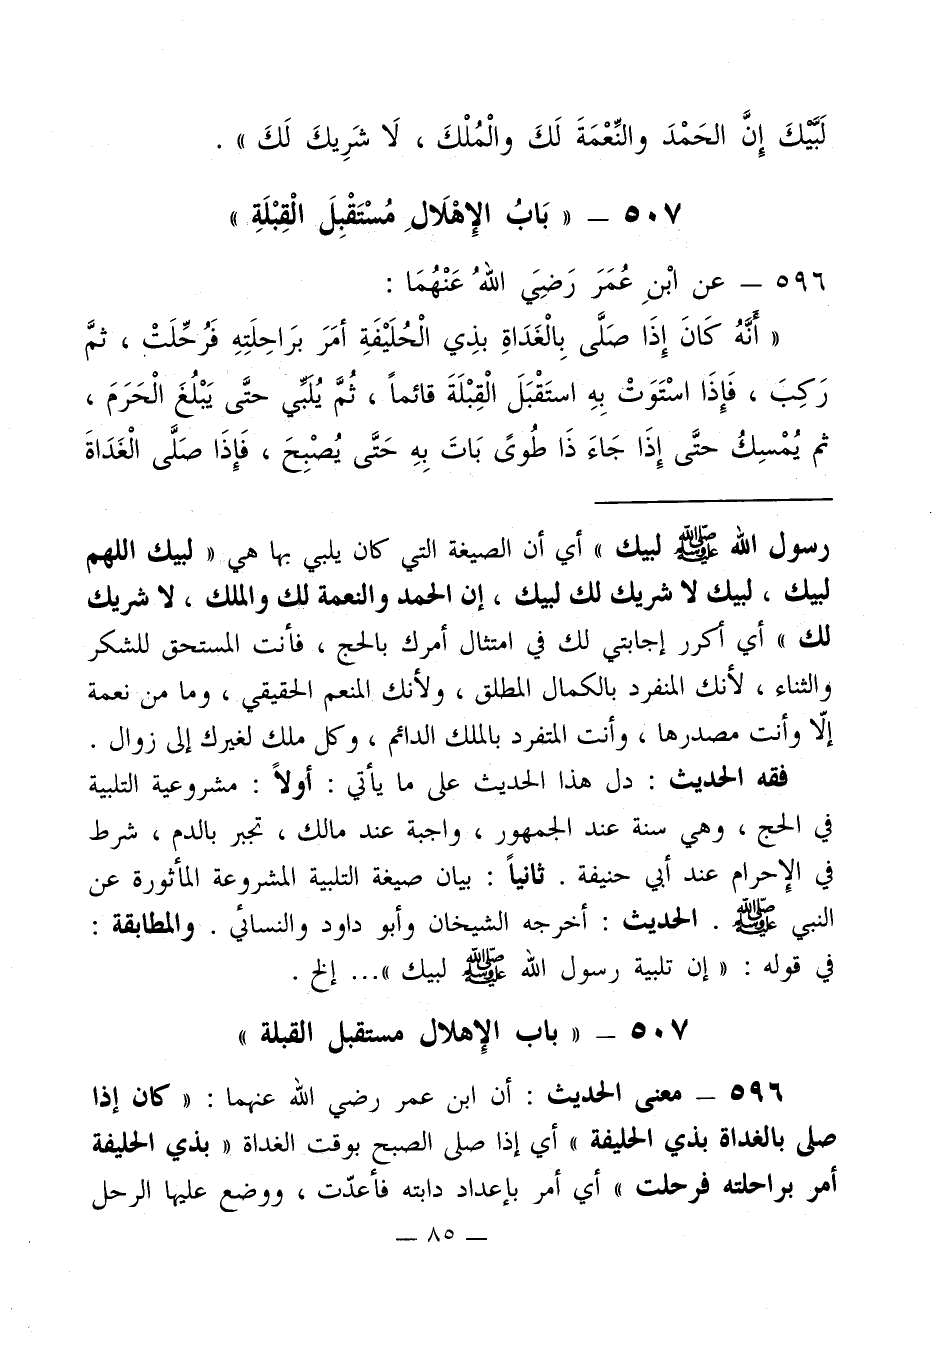 لَبَّيْكَ إِنَّ الحَمْدَ والنِّعْمَةَ لَكَ والْمُلْكَ ، لَا شَرِيكَ لَكَ » .
٥٠٧ ـ « بَابُ الإِهْلَالِ مُسْتَقْبِلَ الْقِبْلَةِ »
٥٩٦ ـ عن ابْنِ عُمَرَ رَضِيَ اللهُ عَنْهُمَا :
« أَنَّهُ كَانَ إِذَا صَلَّى بِالْغَدَاةِ بِذِي الْحُلَيْفَةِ أمَرَ بَرَاحِلَتِهِ فَرُحِّلَتْ ، ثمَّ
رَكِبَ ، فَإِذَا اسْتَوَتْ بِهِ استَقْبَلَ الْقِبْلَةَ قائماً ، ثُمَّ يُلَبِّي حتَّى يَبْلُغَ الْحَرَمَ ،
ثم يُمْسِكُ حتَّى إِذَا جَاءَ ذَا طُوىً بَاتَ بِهِ حَتَّى يُصْبِحَ ، فَإِذَا صَلَّى الْغَدَاةَ
رسول الله ﷺ لبيك » أي أن الصيغة التي كان يلبي بها هي « لبيك اللهم
لبيك ، لبيك لا شريك لك لبيك ، إن الحمد والنعمة لك والملك ، لا شريك
لك » أي أكرر إجابتي لك في امتثال أمرك بالحج ، فأنت المستحق للشكر
والثناء ، لأنك المنفرد بالكمال المطلق ، ولأنك المنعم الحقيقي ، وما من نعمة
إلّا وأنت مصدرها ، وأنت المتفرد بالملك الدائم ، وكل ملك لغيرك إلى زوال .
فقه الحديث : دل هذا الحديث على ما يأتي : أولاً : مشروعية التلبية
في الحج ، وهي سنة عند الجمهور ، واجبة عند مالك ، تجبر بالدم ، شرط
في الإحرام عند أبي حنيفة . ثانياً : بيان صيغة التلبية المشروعة المأثورة عن
النبي ﷺ . الحديث : أخرجه الشيخان وأبو داود والنسائي . والمطابقة :
في قوله : « إن تلبية رسول الله ﷺ لبيك »... إلخ .
٥٠٧ ـ « باب الإهلال مستقبل القبلة »
٥٩٦ ـ معنى الحديث : أن ابن عمر رضي الله عنهما : « كان إذا
صلى بالغداة بذي الحليفة » أي إذا صلى الصبح بوقت الغداة « بذي الحليفة
أمر براحلته فرحلت » أي أمر بإعداد دابته فأعدّت ، ووضع عليها الرحل
ـ ٨٥ ـ